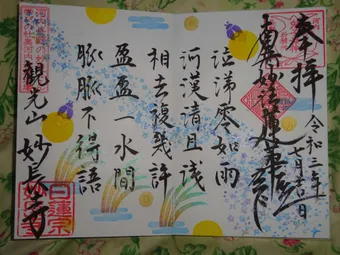 奉拝
令和三年
七月七日
南無妙法蓮華経
泣涕零如雨
河漢清且浅
相去復幾許
盈盈一水間
脈脈不得語
観光山 妙長寺
日蓮宗